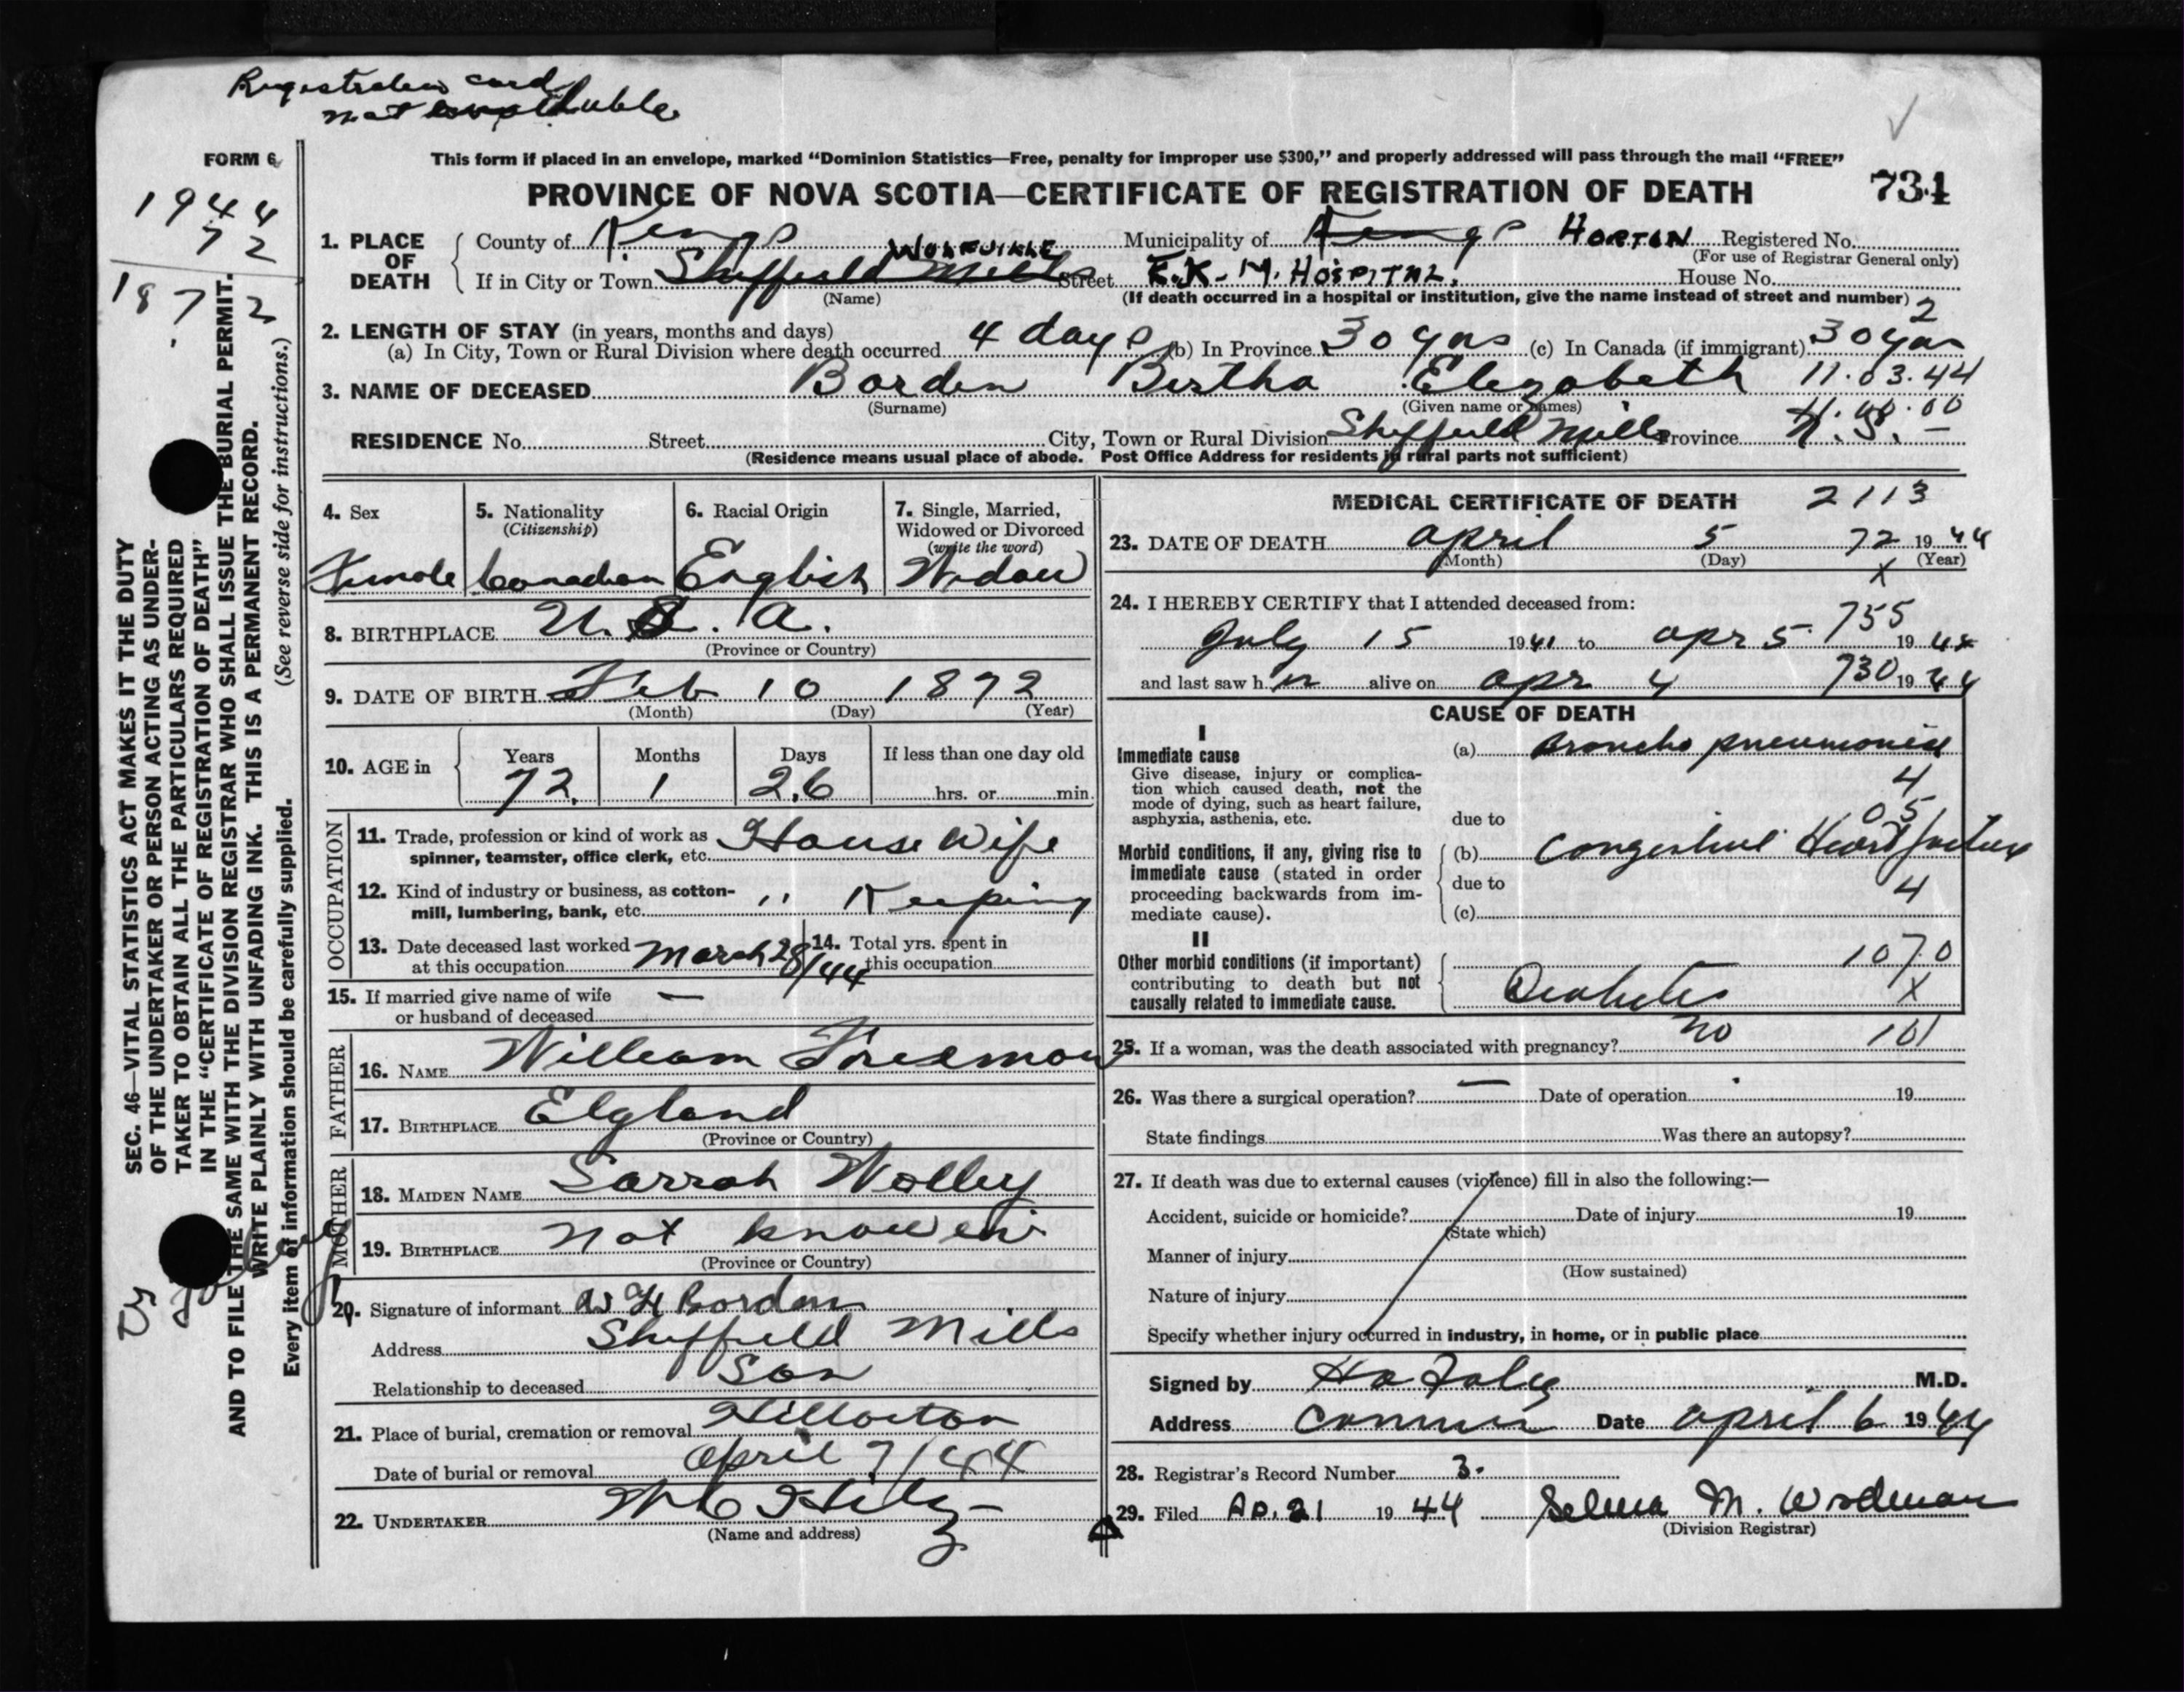 Registration card
not available
FORM 6
1944
72
1872
This form if placed in an envelope, marked “Dominion Statistics—Free, penalty for improper use $300,” and properly addressed will pass through the mail “FREE”
PROVINCE OF NOVA SCOTIA—CERTIFICATE OF REGISTRATION OF DEATH 734
1. PLACE OF DEATH County of Kings Municipality of Kings HORTON Registered No.
(For use of Registrar General only)
If in City or Town Sheffield Mills WOLFVILLE Street E.K.M. HOSPITAL. House No.
(Name) (If death occurred in a hospital or institution, give the name instead of street and number) 2
2. LENGTH OF STAY (in years, months and days)
(a) In City, Town or Rural Division where death occurred 4 days (b) In Province 30 yrs (c) In Canada (if immigrant) 30 yrs
3. NAME OF DECEASED Borden Bertha Elezabeth 11.03.44
(Surname) (Given name or names)
RESIDENCE No. Street City, Town or Rural Division Sheffield Mills Province N.S.
(Residence means usual place of abode. Post Office Address for residents in rural parts not sufficient)
4. Sex 5. Nationality (Citizenship) 6. Racial Origin 7. Single, Married, Widowed or Divorced (write the word)
Female Canadian English Widow
8. BIRTHPLACE U.S.A.
(Province or Country)
9. DATE OF BIRTH Feb 10 1872
(Month) (Day) (Year)
10. AGE in Years Months Days If less than one day old
72 1 26 hrs. or min.
OCCUPATION
11. Trade, profession or kind of work as spinner, teamster, office clerk, etc. House Wife
12. Kind of industry or business, as cotton-mill, lumbering, bank, etc. " Keeping
13. Date deceased last worked at this occupation March 28/44 14. Total yrs. spent in this occupation
15. If married give name of wife or husband of deceased —
FATHER
16. NAME William Freeman
17. BIRTHPLACE Elgland
(Province or Country)
MOTHER
18. MAIDEN NAME Sarrah Wolley
19. BIRTHPLACE not knowen
(Province or Country)
20. Signature of informant W H Borden
Address Sheffield Mills
Relationship to deceased Son
21. Place of burial, cremation or removal Hillaton
Date of burial or removal April 7/44
22. UNDERTAKER W C Hiltz
(Name and address)
MEDICAL CERTIFICATE OF DEATH 2113
23. DATE OF DEATH April 5 72 1944
(Month) (Day) (Year)
x
24. I HEREBY CERTIFY that I attended deceased from:
July 15 1941 to Apr 5 755 1944
and last saw her alive on Apr 4 730 1944
CAUSE OF DEATH
I
Immediate cause (a) Broncho pneumonia
Give disease, injury or complication which caused death, not the mode of dying, such as heart failure, asphyxia, asthenia, etc. 4
05
due to
Morbid conditions, if any, giving rise to immediate cause (stated in order proceeding backwards from immediate cause). (b) Congestive Heart failure
due to 4
(c)
II
Other morbid conditions (if important) contributing to death but not causally related to immediate cause. 1070
Diabetes X
25. If a woman, was the death associated with pregnancy? no 101
26. Was there a surgical operation? — Date of operation 19
State findings Was there an autopsy?
27. If death was due to external causes (violence) fill in also the following:—
Accident, suicide or homicide? Date of injury 19
(State which)
Manner of injury
(How sustained)
Nature of injury
Specify whether injury occurred in industry, in home, or in public place
Signed by M.D.
Address Canning Date April 6 1944
28. Registrar's Record Number 3.
29. Filed Ap. 21 1944 Selena M. Woodman
(Division Registrar)
SEC. 46—VITAL STATISTICS ACT MAKES IT THE DUTY
OF THE UNDERTAKER OR PERSON ACTING AS UNDER-
TAKER TO OBTAIN ALL THE PARTICULARS REQUIRED
IN THE “CERTIFICATE OF REGISTRATION OF DEATH”
AND TO FILE THE SAME WITH THE DIVISION REGISTRAR WHO SHALL ISSUE THE BURIAL PERMIT.
WRITE PLAINLY WITH UNFADING INK. THIS IS A PERMANENT RECORD.
(See reverse side for instructions.)
Every item of information should be carefully supplied.